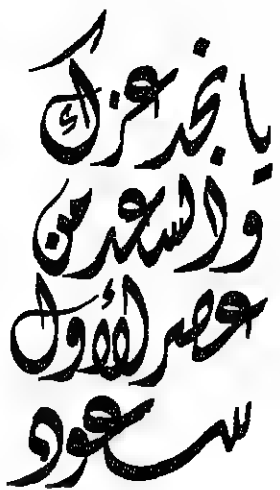 يا نجد عزك
والسعد من
عصر الأول
سعود